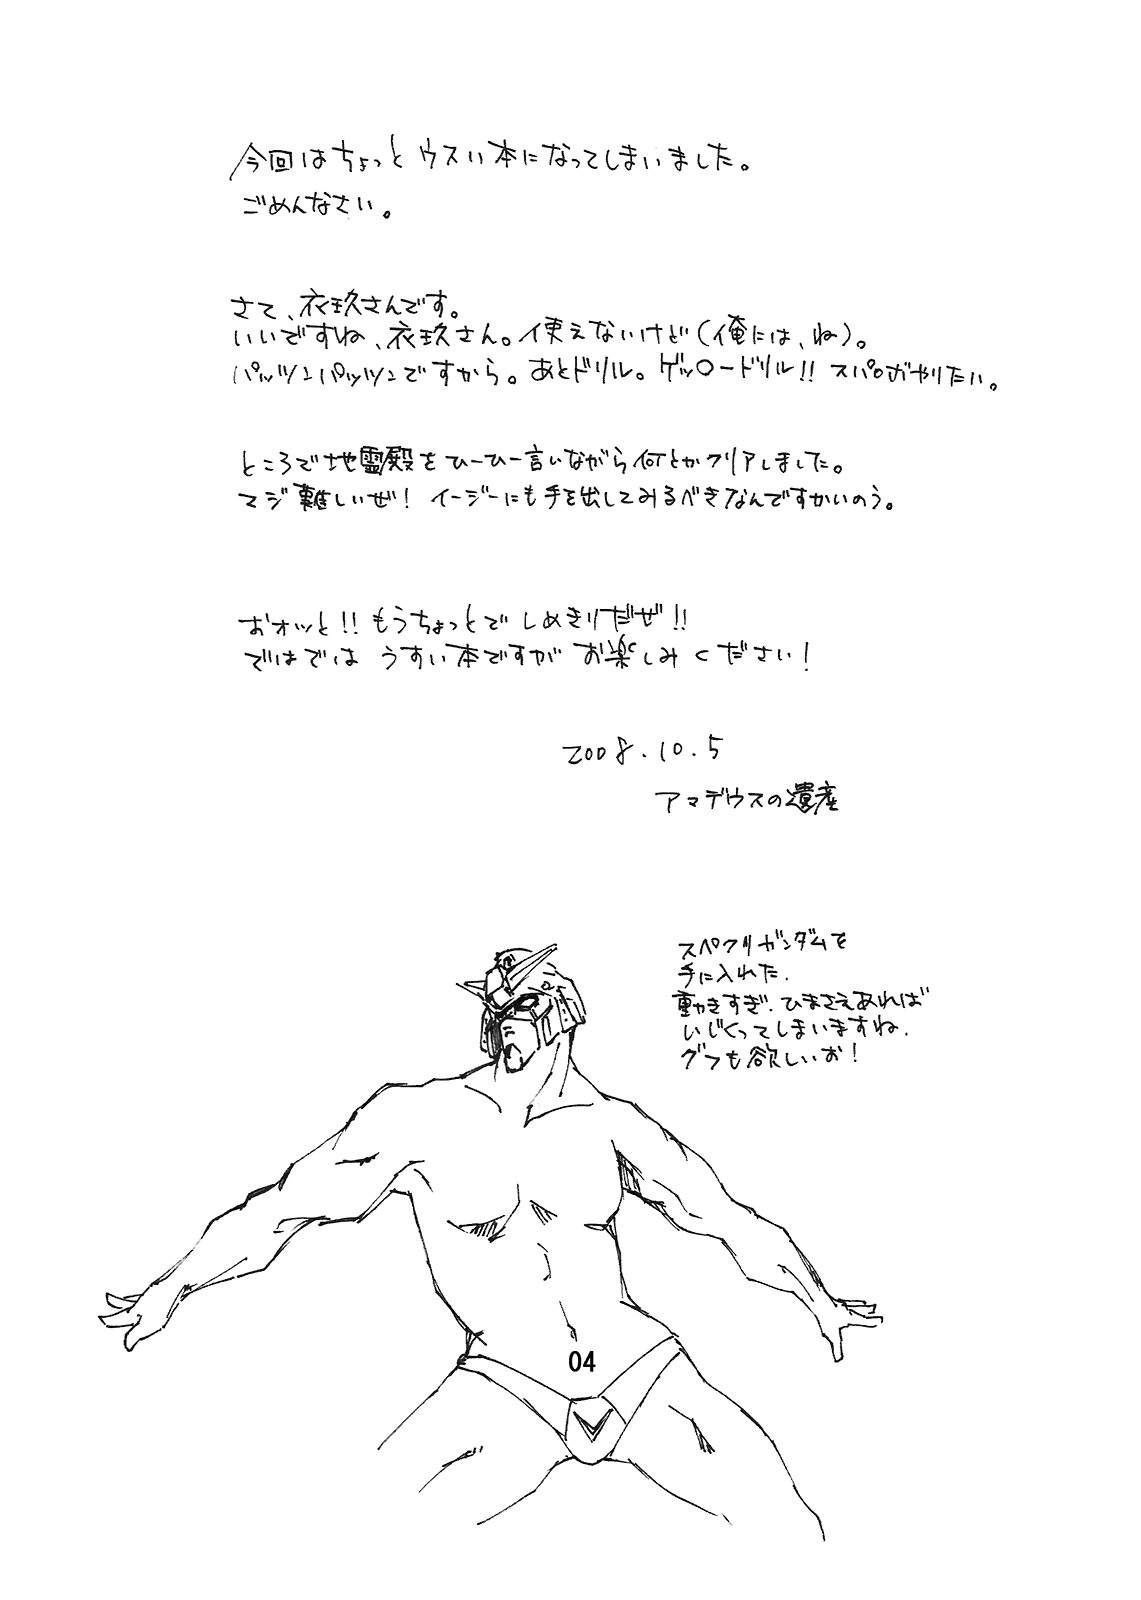 今回はちょっとウスい本になってしまいました。
ごめんなさい。
さて、衣玖さんです。
いいですね、衣玖さん。使えないけど(俺には、ね)。
パッツンパッツンですから。あとドリル。ゲッ〇ードリル!! スパロボやりたい。
ところで地霊殿をひーひー言いながら何とかクリアしました。
マジ難しいぜ! イージーにも手を出してみるべきなんですかいのう。
おオッと!! もうちょっとでしめきりだぜ!!
ではでは うすい本ですが お楽しみください!
2008.10.5
アマデウスの遺産
スペクリガンダムを
手に入れた.
動きすぎ. ひまさえあれば
いじくってしまいますね.
グフも欲しいお!
04